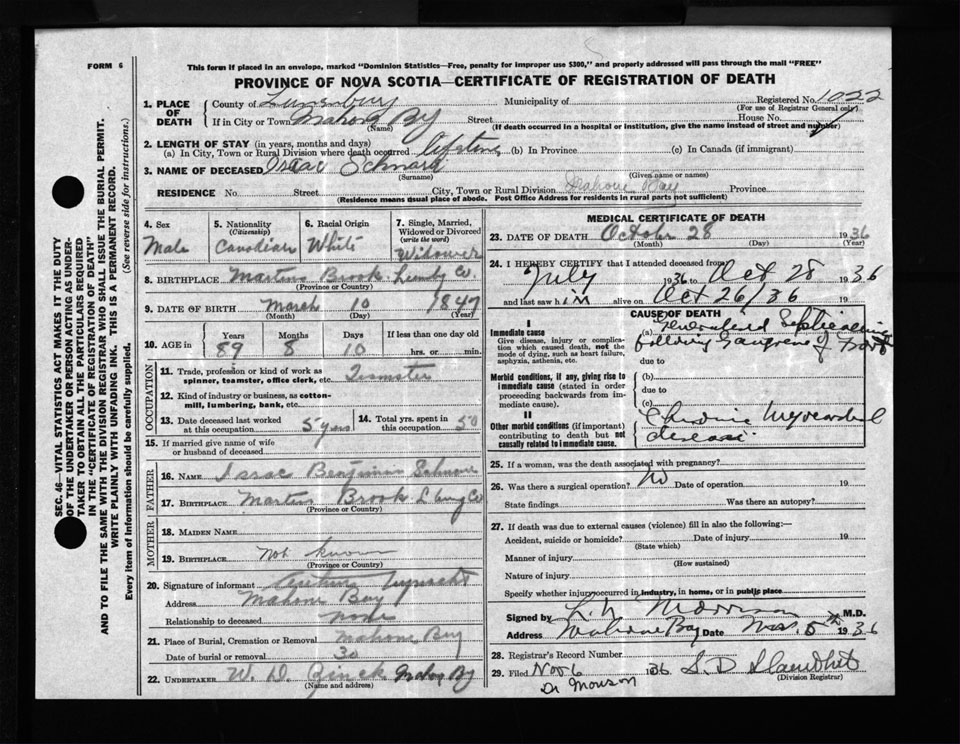 FORM 6
This form if placed in an envelope, marked "Dominion Statistics—Free, penalty for improper use $300," and properly addressed will pass through the mail "FREE"
PROVINCE OF NOVA SCOTIA—CERTIFICATE OF REGISTRATION OF DEATH
SEC. 46—VITAL STATISTICS ACT MAKES IT THE DUTY
OF THE UNDERTAKER OR PERSON ACTING AS UNDER-
TAKER TO OBTAIN ALL THE PARTICULARS REQUIRED
IN THE "CERTIFICATE OF REGISTRATION OF DEATH"
AND TO FILE THE SAME WITH THE DIVISION REGISTRAR WHO SHALL ISSUE THE BURIAL PERMIT.
WRITE PLAINLY WITH UNFADING INK. THIS IS A PERMANENT RECORD.
Every item of information should be carefully supplied. (See reverse side for instructions.)
1. PLACE OF DEATH County of Lunenburg Municipality of Registered No. 1022
(For use of Registrar General only)
If in City or Town Mahone By Street House No.
(Name) (If death occurred in a hospital or institution, give the name instead of street and number)
2. LENGTH OF STAY (in years, months and days)
(a) In City, Town or Rural Division where death occurred lifetime (b) In Province (c) In Canada (if immigrant)
3. NAME OF DECEASED Isaac Schnare
(Surname) (Given name or names)
RESIDENCE No. Street City, Town or Rural Division Mahone Bay Province
(Residence means usual place of abode. Post Office Address for residents in rural parts not sufficient)
4. Sex Male
5. Nationality (Citizenship) Canadian
6. Racial Origin White
7. Single, Married, Widowed or Divorced (write the word) Widower
8. BIRTHPLACE Martins Brook Co.
(Province or Country)
9. DATE OF BIRTH March 10 1847
(Month) (Day) (Year)
10. AGE in Years 89 Months 8 Days 10 If less than one day old
hrs. or min.
OCCUPATION
11. Trade, profession or kind of work as
spinner, teamster, office clerk, etc. Teamster
12. Kind of industry or business, as cotton-
mill, lumbering, bank, etc.
13. Date deceased last worked
at this occupation 5 years
14. Total yrs. spent in
this occupation 50
15. If married give name of wife
or husband of deceased
FATHER
16. NAME Isaac Benjamin Schnare
17. BIRTHPLACE Martins Brook Co
(Province or Country)
MOTHER
18. MAIDEN NAME
19. BIRTHPLACE Not known
(Province or Country)
20. Signature of informant
Address Mahone Bay
Relationship to deceased none
21. Place of Burial, Cremation or Removal Mahone Bay
Date of burial or removal 30
22. UNDERTAKER W. D. Zinck Mahone By
(Name and address)
MEDICAL CERTIFICATE OF DEATH
23. DATE OF DEATH October 28 1936
(Month) (Day) (Year)
24. I HEREBY CERTIFY that I attended deceased from
July 1936 to Oct 28 1936
and last saw him alive on Oct 26/36 19
CAUSE OF DEATH
I
Immediate cause
Give disease, injury or complica-
tion which caused death, not the
mode of dying, such as heart failure,
asphyxia, asthenia, etc.
(a) Generalized Septicaemia
following Gangrene of Foot
due to
Morbid conditions, if any, giving rise to
immediate cause (stated in order
proceeding backwards from im-
mediate cause).
(b)
due to
(c)
II
Other morbid conditions (if important)
contributing to death but not
causally related to immediate cause.
Chronic Myocardial
disease.
25. If a woman, was the death associated with pregnancy?
26. Was there a surgical operation? No Date of operation 19
State findings Was there an autopsy?
27. If death was due to external causes (violence) fill in also the following:—
Accident, suicide or homicide? Date of injury 19
(State which)
Manner of injury
(How sustained)
Nature of injury
Specify whether injury occurred in industry, in home, or in public place
Signed by Morrison M.D.
Address Mahone Bay Date Nov. 5th 1936
28. Registrar's Record Number
29. Filed Nov 6 36 S. D.
(Division Registrar)
Dr